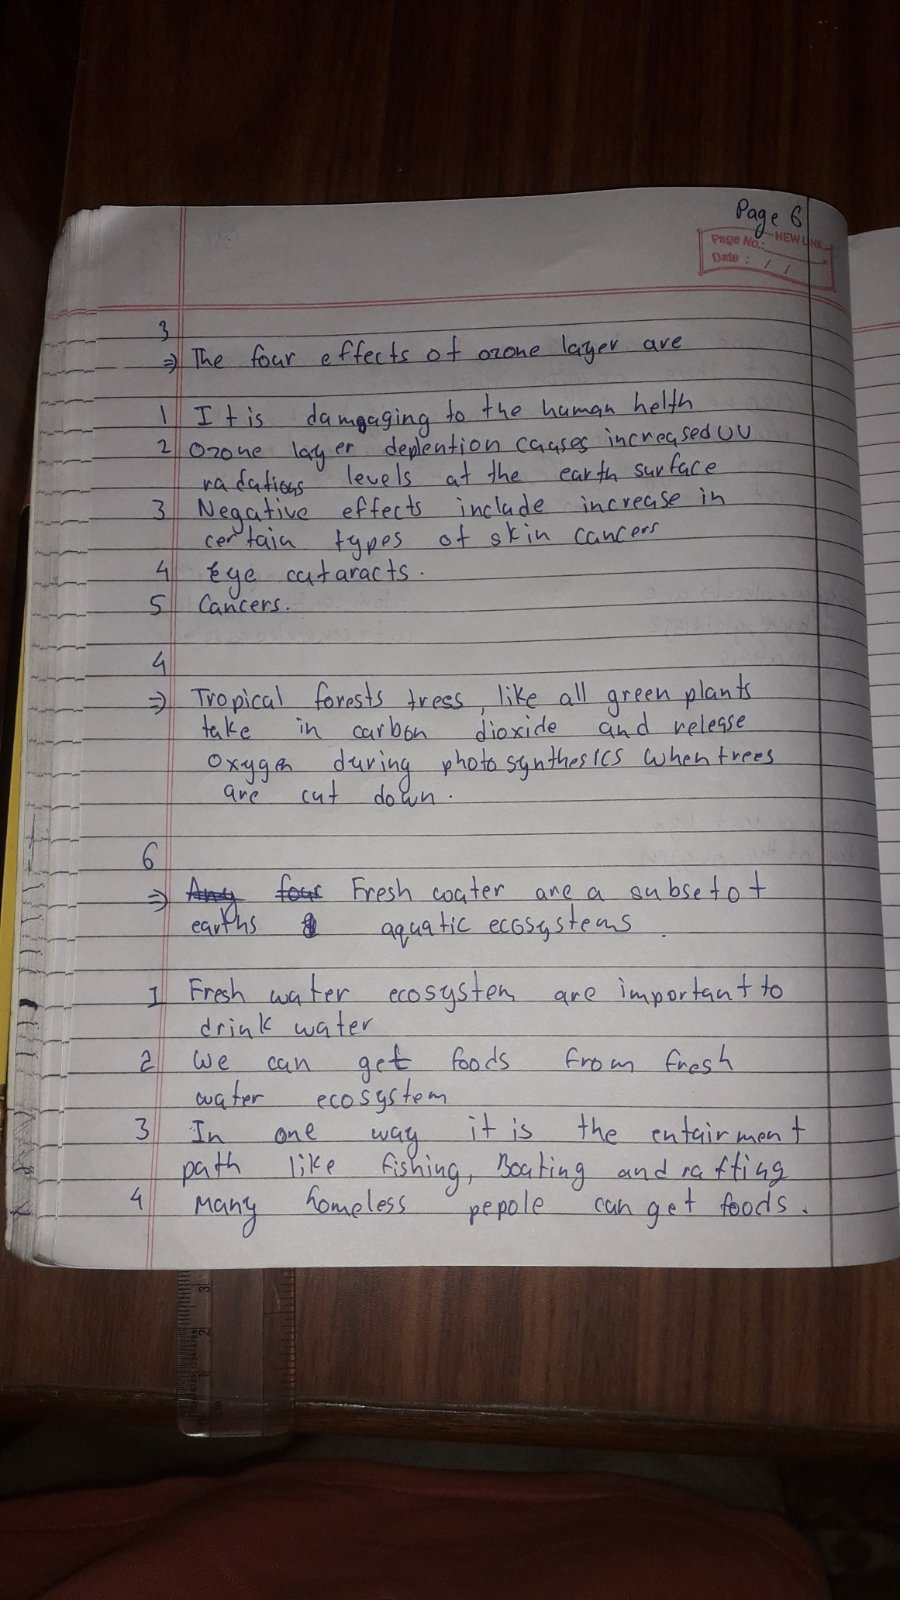 Page 6
Page No.: NEW LINK
Date : / /
3
⇒ The four effects of ozone layer are
1 It is damgaging to the human helth
2 Ozone layer deplention causes increased UV
radations levels at the earth surface
3 Negative effects include increase in
certain types of skin cancers
4 Eye cataracts.
5 Cancers.
4
⇒ Tropical forests tress, like all green plants
take in carbon dioxide and release
oxygen during photosynthesics when trees
are cut down.
6
⇒ Any four Fresh water are a subset of
earths aquatic ecosystems.
1 Fresh water ecosystem are important to
drink water
2 We can get foods from fresh
water ecosystem
3 In one way it is the entairment
path like fishing, Boating and rafting
4 Many homeless pepole can get foods.